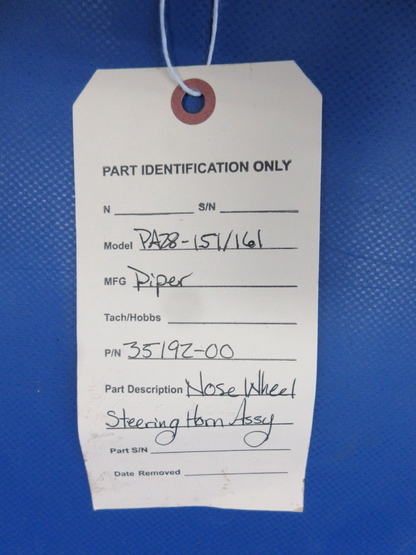 PART IDENTIFICATION ONLY
N S/N
Model PA28-151/161
MFG Piper
Tach/Hobbs
P/N 35192-00
Part Description Nose Wheel
Steering Horn Assy
Part S/N
Date Removed